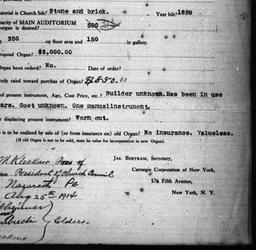 ial is Church built? Stone and brick. Year built? 1899
apacity of MAIN AUDITORIUM 500
organ is desired?
350 on floor area and 150 in gallery.
oposed Organ? $3,000.00
Organ been ordered? No. Date of order?
ready raised toward purchase of Organ?
of present instrument, Age, Cost Price, etc.) Builder unknown. Has been in use
ars. Cost unknown. One manual instrument.
r displacing present instrument? Worn out.
is to be realized by sale of (or from insurance on) old Organ? No insurance. Valueless.
(If old Organ is not to be sold, state its value for incorporation in new Organ).
Pres of
President of Church Council
JAS. BERTRAM, Secretary,
Carnegie Corporation of New York,
Nazareth Pa
576 Fifth Avenue,
Aug 25th 1914
New York, N. Y.
Elders.